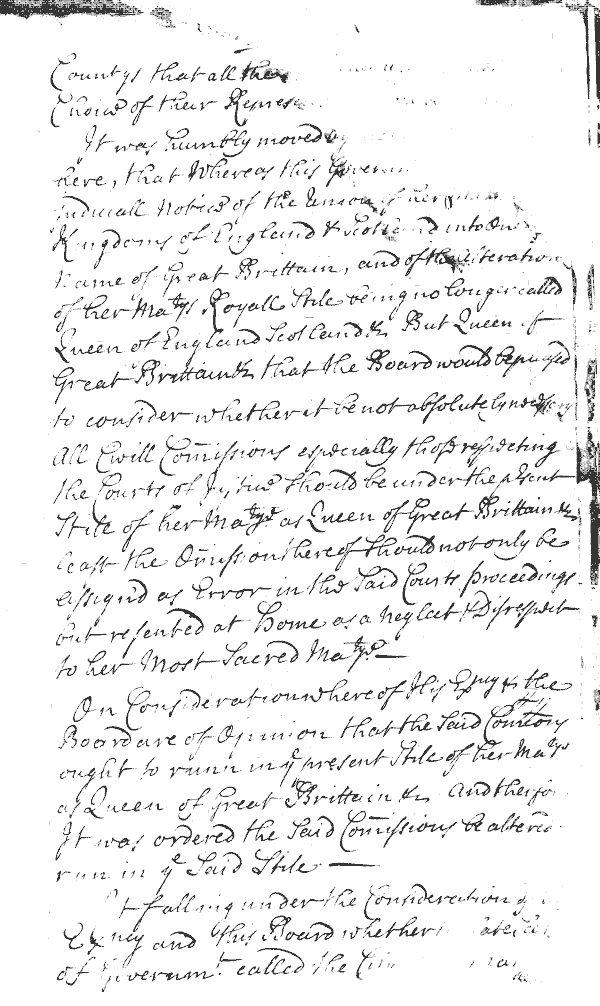 Countys that all the
Choice of their
It was humbly moved
here, that Whereas this
Notice of the Union of her
Kingdoms of England & Scotland into One
Name of Great Brittain, and of the Alteration
of her Matys Royall Stile being no longer called
Queen of England Scotland &c But Queen of
Great Brittain &c that the Board would be pleased
to consider whether it be not absolutely necessary
All Civill Comissions especially those respecting
the Courts of Justice should be under the present
Stile of her Matye as Queen of Great Brittain &c
least the Omission thereof should not only be
Assigned as Error in the Said Courts proceedings
but resented at Home as a Neglect & Disrespect
to her Most Sacred Matye —
On Consideration whereof His Excy & the
Board are of Opinion that the Said
ought to runn in ye present Stile of her Matye
as Queen of Great Brittain &c And
It was ordered the Said Comissions be altered
run in ye Said Stile —
It falling under the Consideration of
Excy and this Board whether
of Governmt. called the